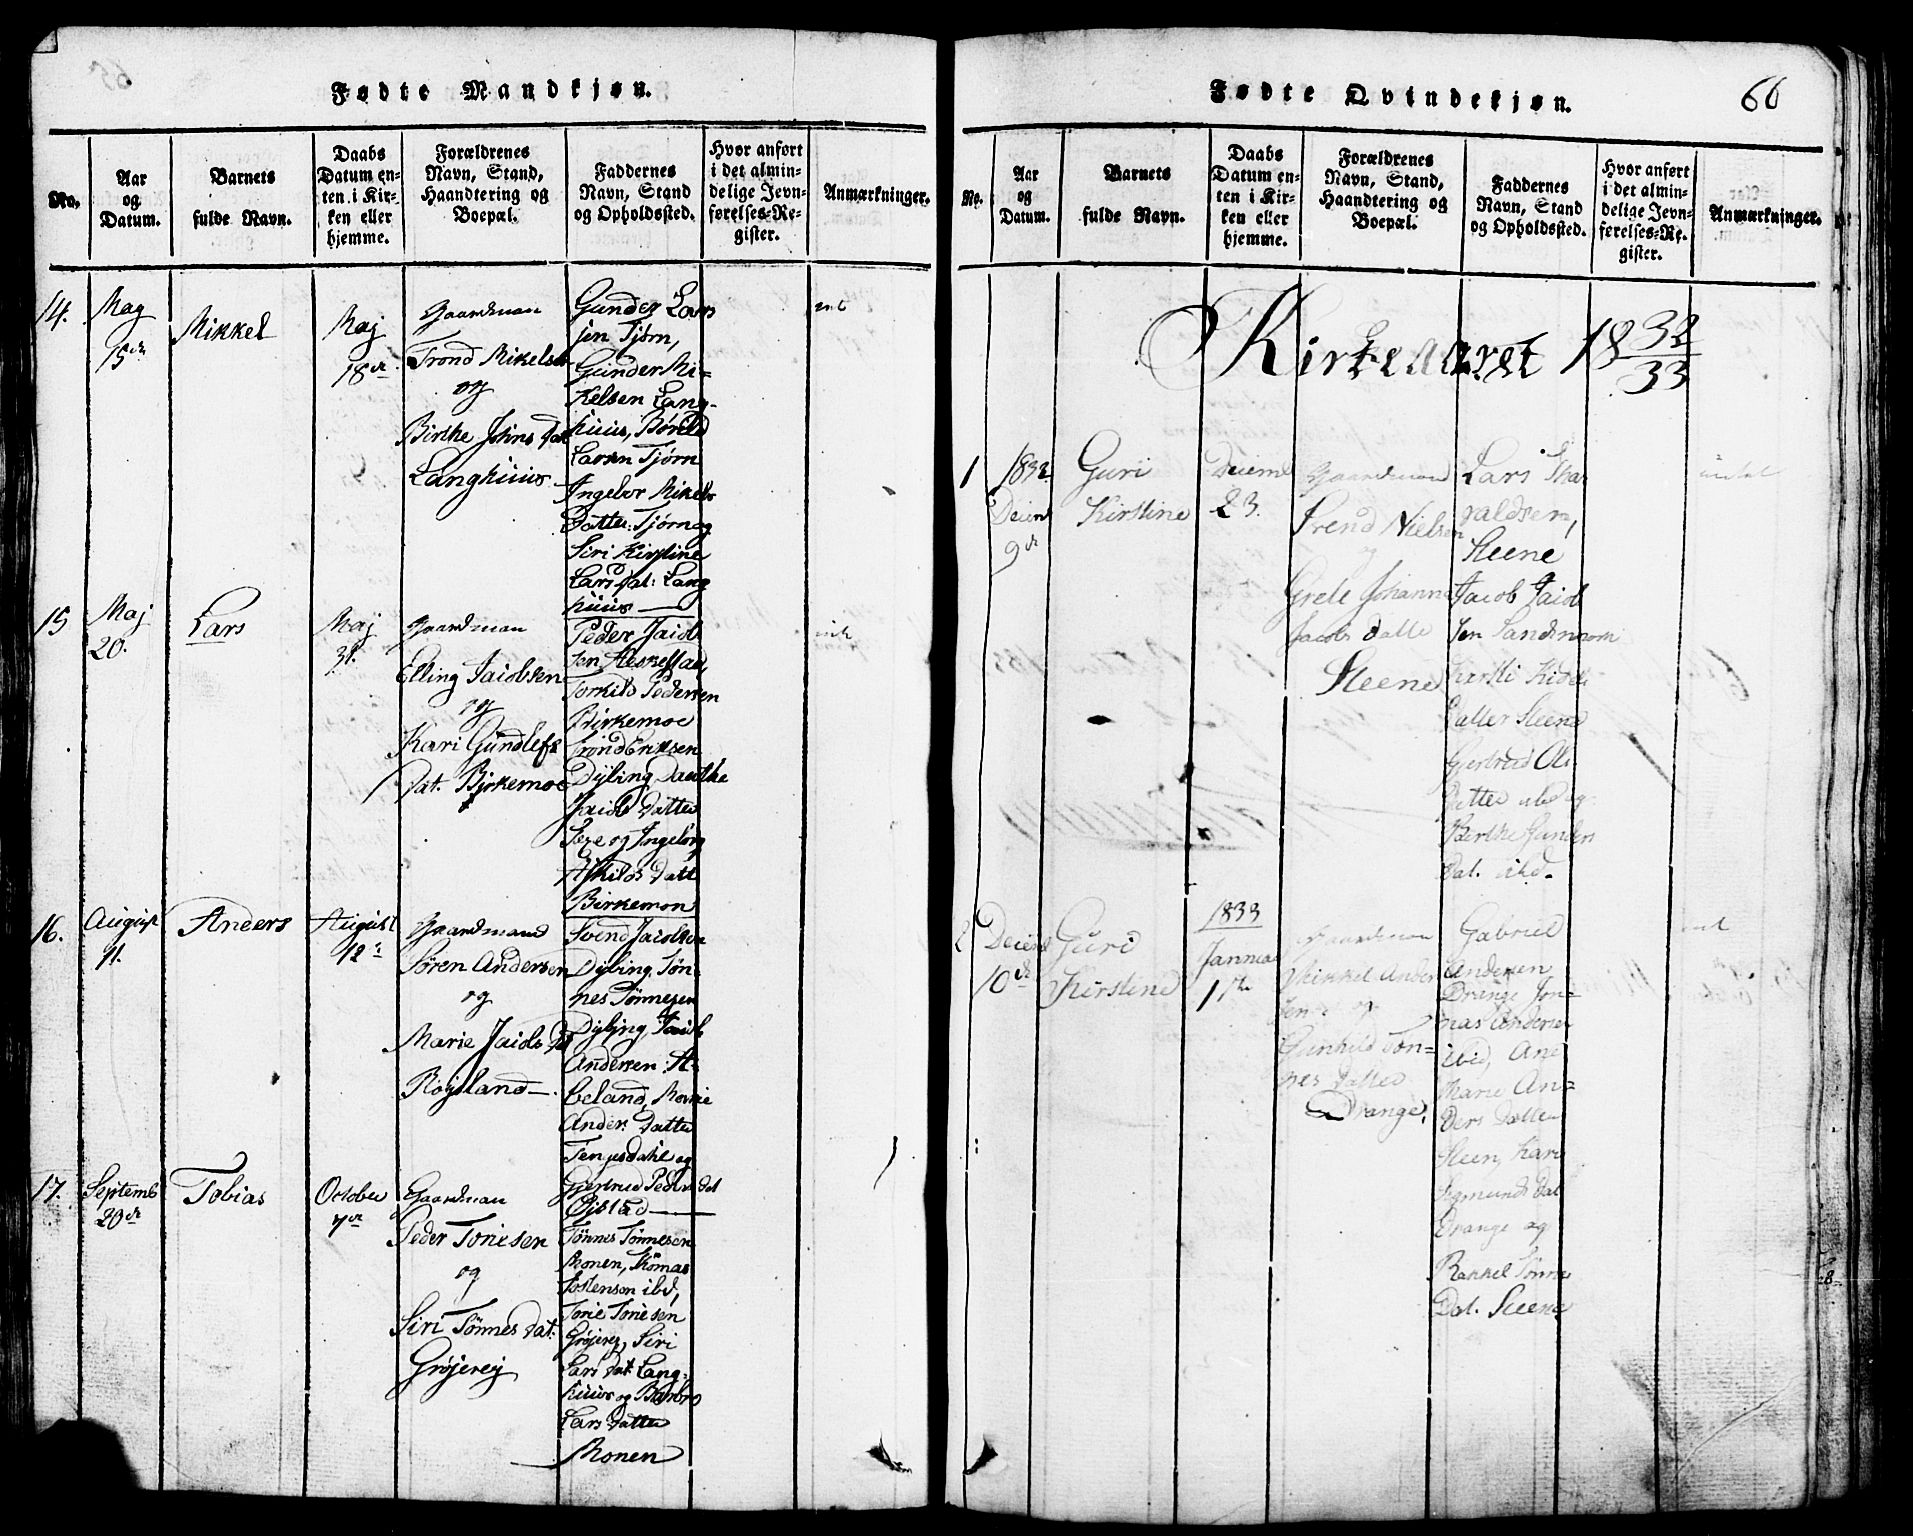 Fødte Mandkjøn.
No.
Aar
og
Datum.
Barnets
fulde Navn.
Daabs
Datum en-
ten i Kir-
ken eller
hjemme.
Forældrenes
Navn, Stand,
Haandtering og
Boepæl.
Faddernes
Navn, Stand
og Opholdssted.
Hvor anført
i det almin-
delige Jevn-
førelses-Re-
gister.
Anmærkninger.
14.
May
15de
Mikkel
Maj
18de
Gaardman
Trond Mikelsen
og
Birthe Johns Dat
Langhuus
Gunder Lars
sen Tjørn,
Gunder Mi-
kelsen Lang-
huus, Børild
Larsen Tjørn
Ingebor Mikels
Datter Tjørn og
Siri Kirstine
Lars Dat: Lang
huus
int
15
Maj
20.
Lars
Maj
31.
Gaardman
Elling Jacobsen
og
Kari Gundlefs
Dat. Birkemoe
Peder Jacob
sen Heskestad,
Torkild Pedersen
Birkemoe
Trond Eriksen
Dybing, Dorthe
Jacobs Datter
og Ingeborg
Askilds Datt
Birkemon
int
16.
August
11.
Anders
August
12
Gaardmand
Søren Andersen
og
Marie Jacobs Dat
Røysland
Svend Jacobsen
Dybing, Tøn-
nes Tønnesen
Dybing, Jacob
Andersen A-
beland, Marie
Anders Datter
og
Gjertrud Peders dat
Øistad
17.
Septemb
20de
Tobias
October
7de
Gaardman
Peder Toriesen
og
Siri Tønnes Dat.
Grøjerej
Tønnes Tønnesen
Monen, Thomas
ibd,
Torie Toriesen
Grøjerej, Siri
Lars Dat Lang-
huus og Barbro
Lars Datter
Monen
Fødte Qvindekjøn.
66
No.
Aar
og
Datum.
Barnets
fulde Navn.
Daabs
Datum en-
ten i Kir-
ken eller
hjemme.
Forældrenes
Navn, Stand,
Haandtering og
Boepæl.
Faddernes
Navn, Stand
og Opholdssted.
Hvor anført
i det almin-
delige Jevn-
førelses-Re-
gister.
Anmærkninger.
Kirkeaaret 1832/33
1
1832
Decemb
9de
Guri
Kirstine
Decemb
23.
Gaardman
Trend Nielsen
og
Grete Johanne
Jacobs Datte
Steene
Lars Tha
raldsen,
Steene
Jacob Jacob
sen Sandsmom
Datter Steene
Gjertrud Ols
Datter ibd og
Berthe Gunders
Dat. ibd.
intet
2
Decemb
10de
Guri
Kirstine
1833
Januar
1ste
Gaardman
Mikkel Ander
sen og
Gunhild Tøn-
nes Datter
Drange.
Gabriel
Andersen
Drange, Jon-
nas Andersen
ibid, Ane
Marie An-
ders Datter
Steen, Kari
Sigmunds Dat
Drange og
Rakkel Tønnes
Dat. Steene
int